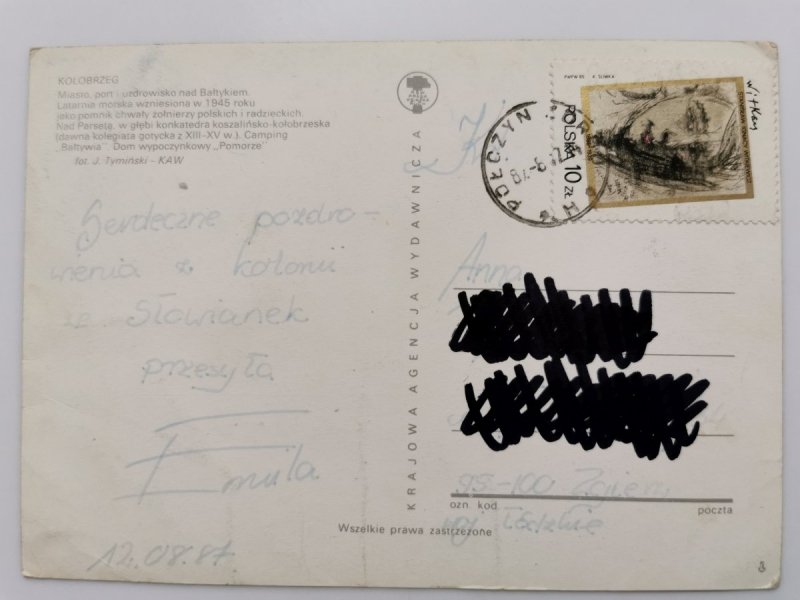 KOŁOBRZEG
Miasto, port i uzdrowisko nad Bałtykiem.
Latarnia morska wzniesiona w 1945 roku
jako pomnik chwały żołnierzy polskich i radzieckich.
Nad Parsętą, w głębi konkatedra koszalińsko-kołobrzeska
(dawna kolegiata gotycka z XIII-XV w.). Camping
„Bałtywia". Dom wypoczynkowy „Pomorze"
fot. J. Tymiński - KAW
Serdeczne pozdro-
wienia z kolonii
ze Słowianek
przesyła
Emila
12.08.87.
KRAJOWA AGENCJA WYDAWNICZA
Wszelkie prawa zastrzeżone
POŁCZYN
POLSKA 10 ZŁ
Witkacy
Anna
95-100 Zgierz
ozn. kod. poczta
woj. Łódzkie